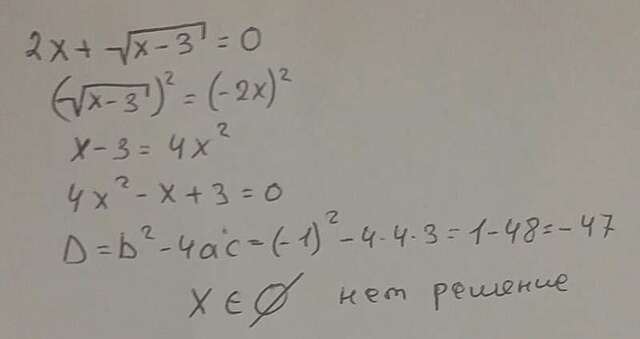 2x + √(x-3) = 0
(√(x-3))² = (-2x)²
x-3 = 4x²
4x² - x + 3 = 0
D = b² - 4ac = (-1)² - 4·4·3 = 1-48 = -47
x ∈ ∅ нет решение